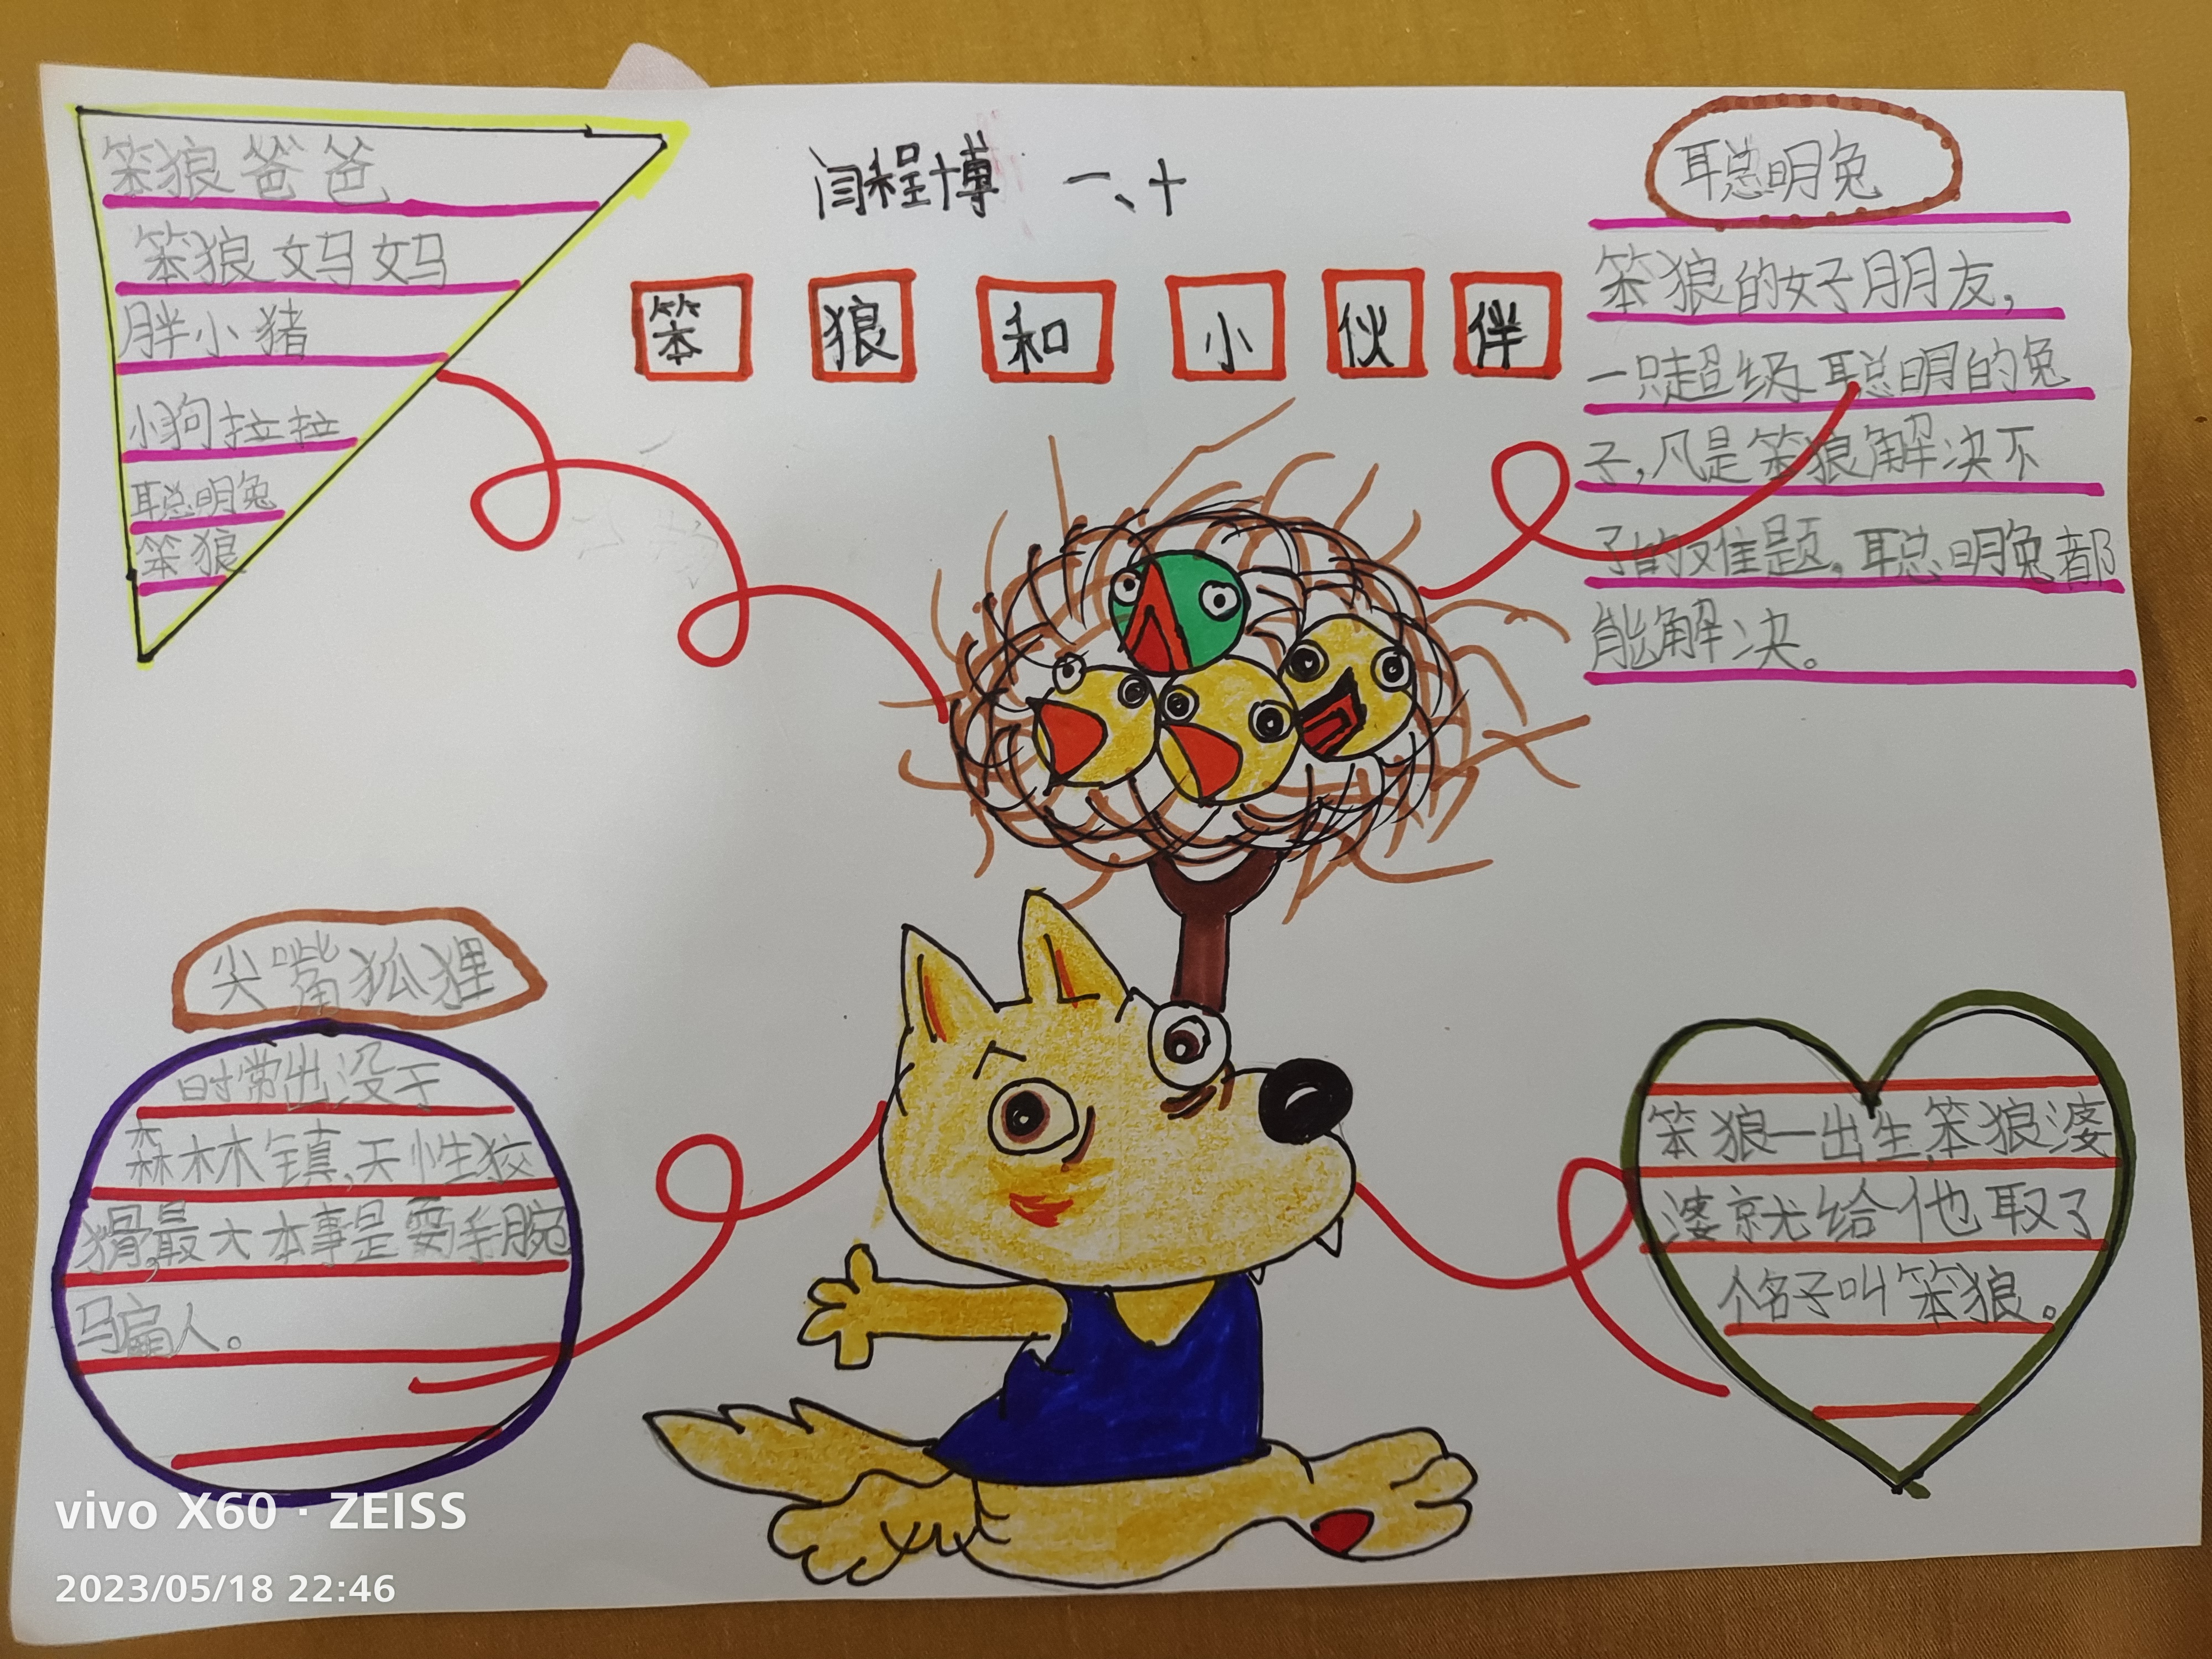 闫程博 一、十
笨狼和小伙伴
笨狼爸爸
笨狼妈妈
胖小猪
小狗拉拉
聪明兔
笨狼
聪明兔
笨狼的好朋友,
一只超级聪明的兔
子,凡是笨狼解决不
了的难题,聪明兔都
能解决。
尖嘴狐狸
时常出没于
森林木镇,天性狡
猾,最大本事是耍手腕
骗人。
笨狼一出生,笨狼婆
婆就给他取了
个名子叫笨狼。
vivo X60 · ZEISS
2023/05/18 22:46